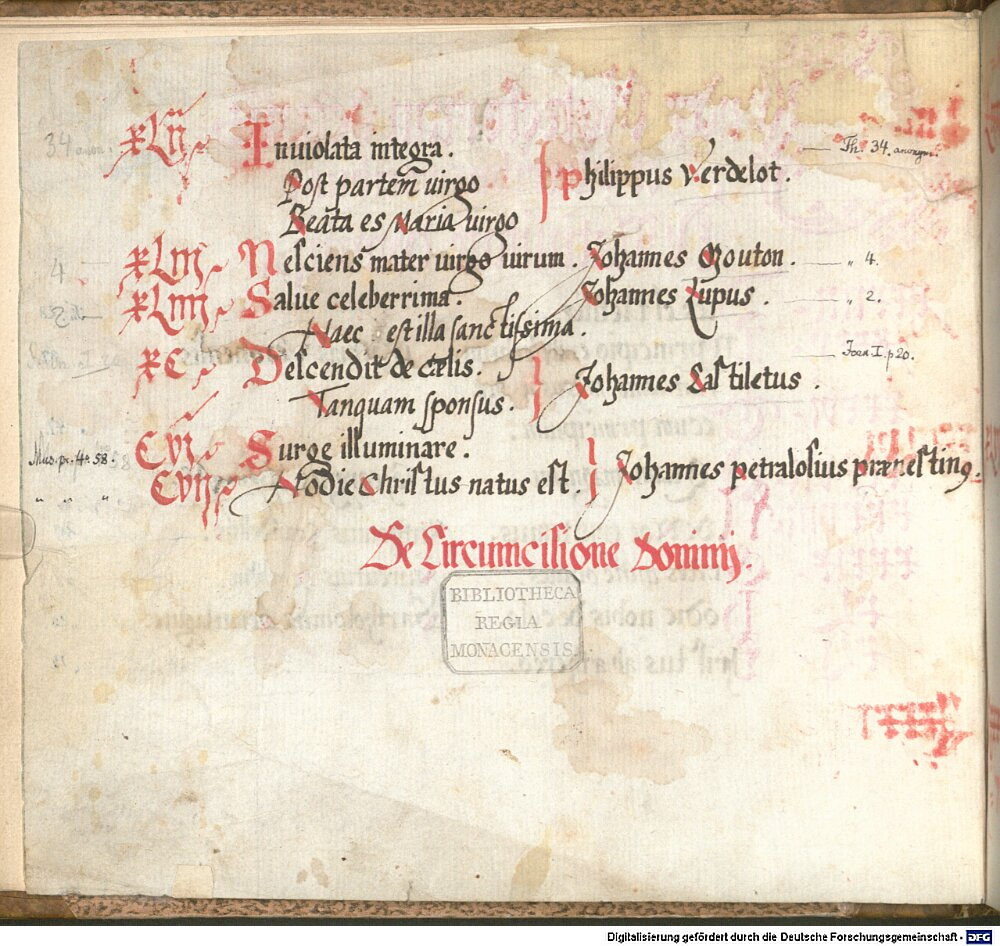 xLij Inuiolata integra.
Post partem uirgo
Philippus Verdelot. Th. 34. anonym.
Beata es Maria uirgo
xLiij Nesciens mater uirgo uirum. Johannes Mouton. " 4.
xLiiij Salue celeberrima. Johannes Lupus. " 2.
Haec est illa sanctissima.
xC Descendit de caelis. Johannes Castiletus. Joan. I. p. 20.
Tanquam sponsus.
Mus. pr. 4o 58. CVI Surge illuminare. Johannes petraloisius prænesting.
" " " CVII Hodie Christus natus est.
De Circumcisione Dominij.
BIBLIOTHECA
REGIA
MONACENSIS.
Digitalisierung gefördert durch die Deutsche Forschungsgemeinschaft - DFG